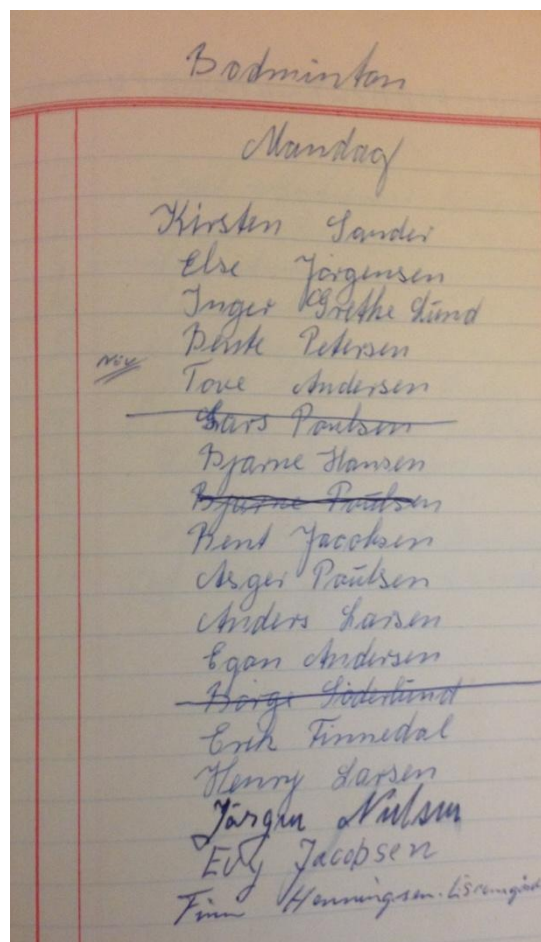 Badminton
Mandag
Kirsten Sander
Else Jørgensen
Inger Grethe Lund
Bente Petersen
Tove Andersen
Lars Poulsen
Bjarne Hansen
Bjarne Poulsen
Bent Jacobsen
Asger Poulsen
Anders Larsen
Egon Andersen
Börge Söderlund
Erik Finnedal
Henry Larsen
Jörgen Nielsen
Evy Jacobsen
Finn Henningsen